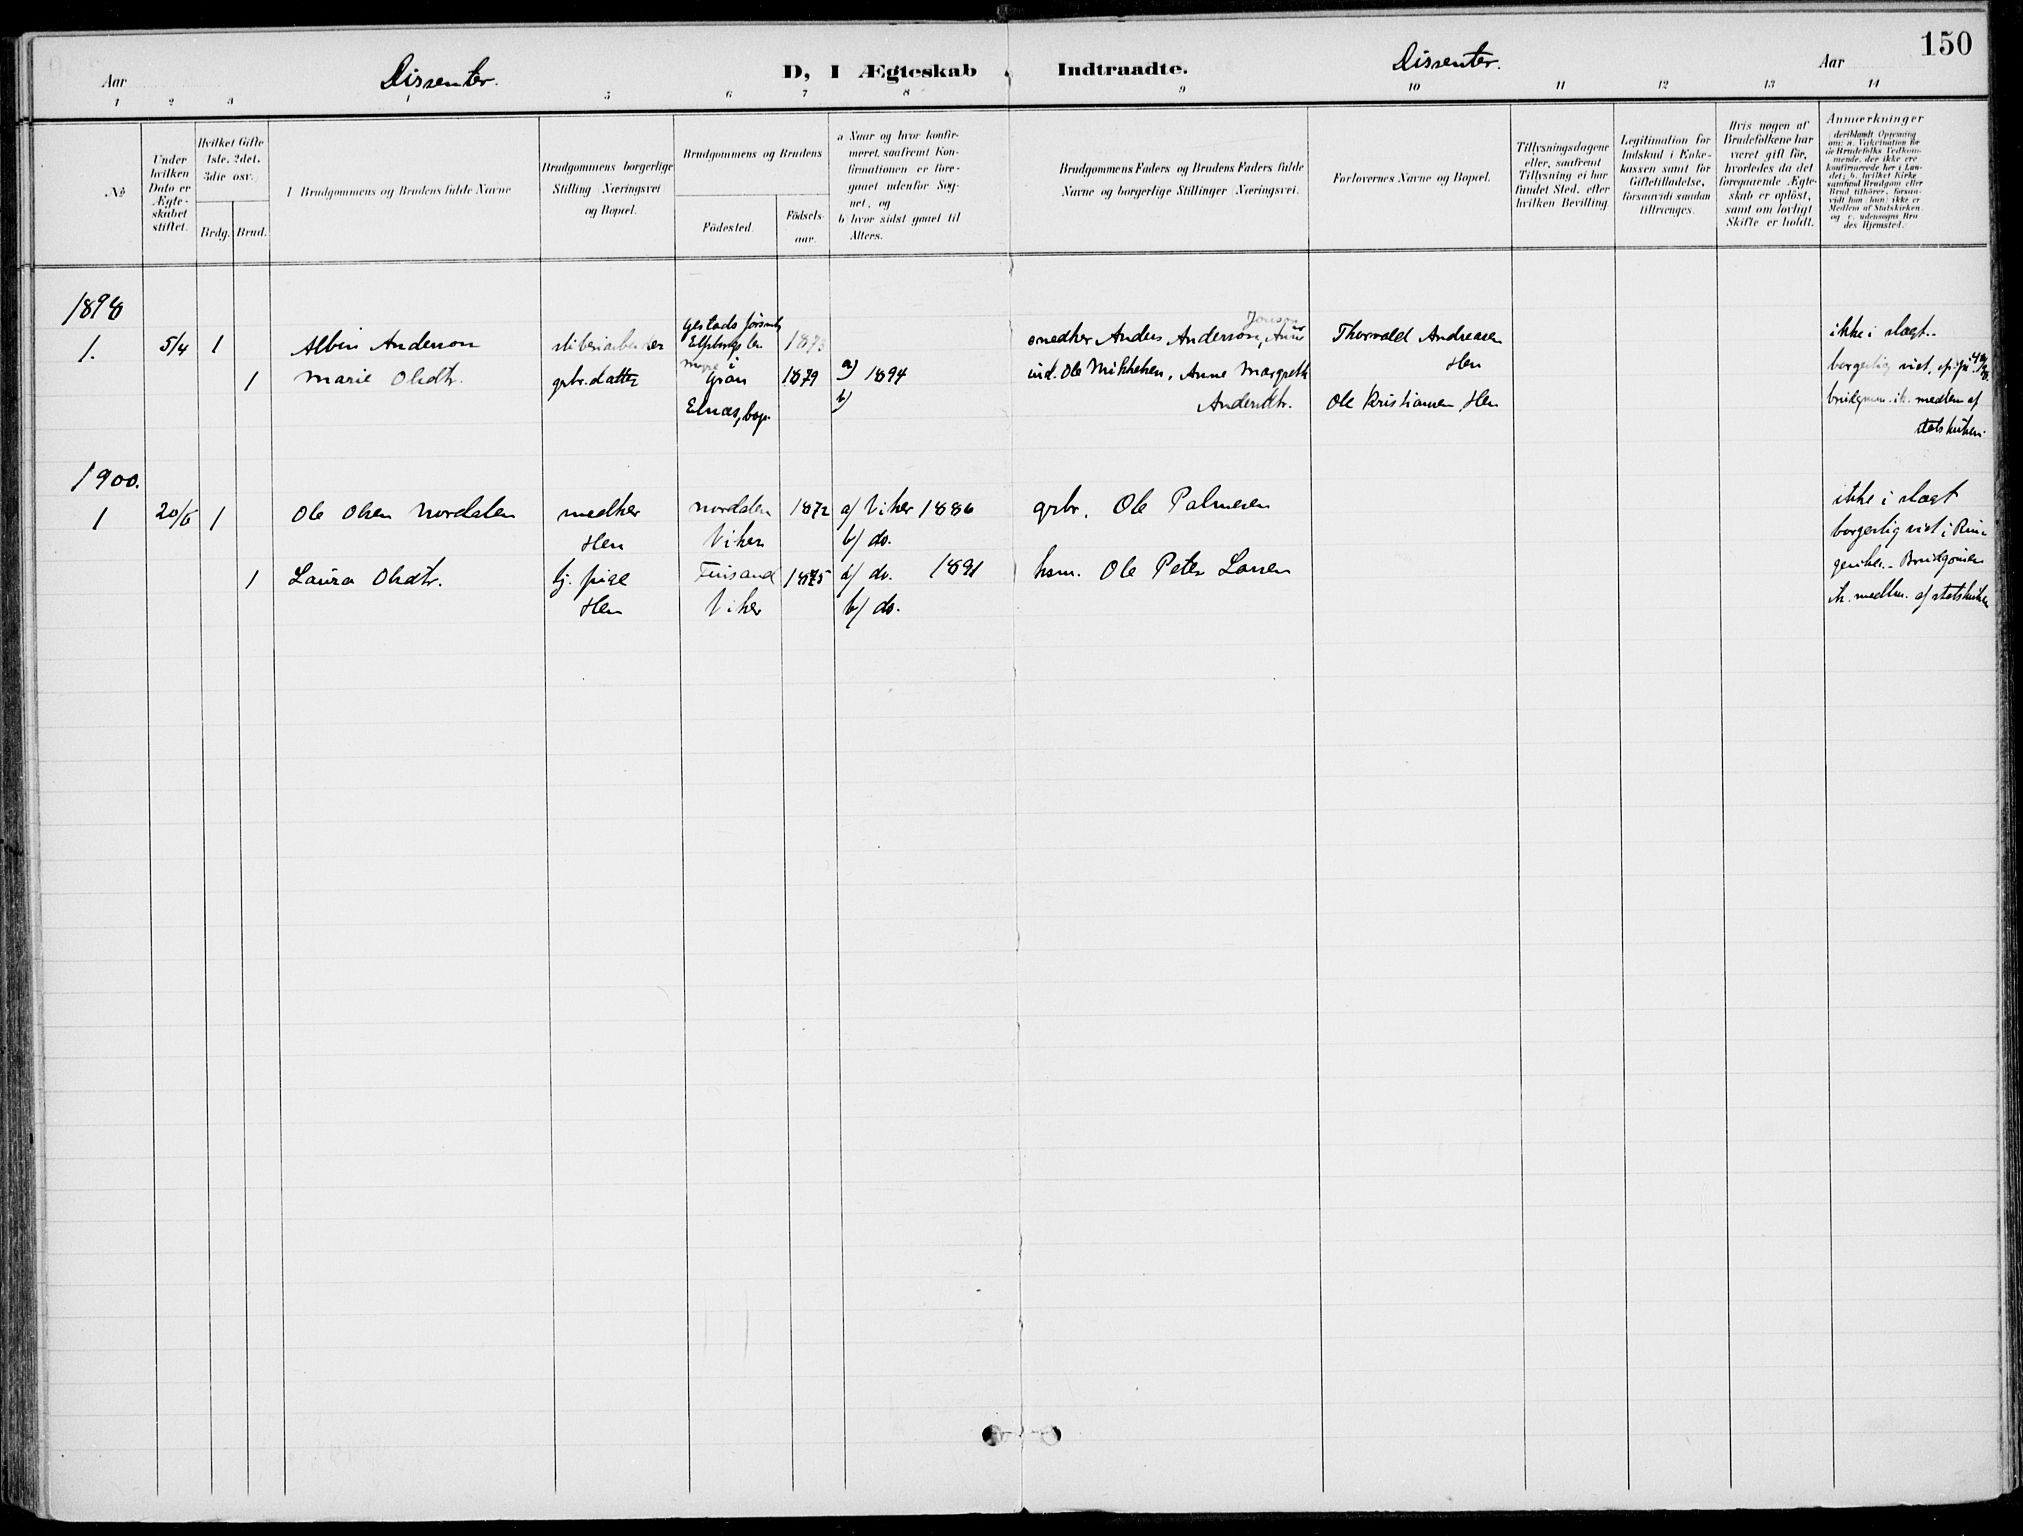 150
Aar
Dissenter.
D, I Ægteskab Indtraadte.
Dissenter.
Aar
1 2 3 4 5 6 7 8 9 10 11 12 13 14
No
Under hvilken Dato er Ægteskabet stiftet.
Hvilket Gifte 1ste, 2det, 3die osv.
Brdg. Brud.
Brudgommens og Brudens fulde Navne
Brudgommens borgerlige Stilling (Næringsvei) og Bopæl.
Brudgommens og Brudens
Födested. Födselsaar.
a Naar og hvor konfirmeret, saafremt Konfirmationen er foregaaet udenfor Sognet, og
b hvor sidst gaaet til Alters.
Brudgommens Faders og Brudens Faders fulde Navne og borgerlige Stillinger (Næringsvei).
Forlovernes Navne og Bopæl.
Tillysningsdagene eller, saafremt Tillysning ei har fundet Sted, efter hvilken Bevilling.
Legitimation for Indskud i Enkekassen samt for Giftetilladelse, forsaavidt saadan tiltrænges.
Hvis nogen af Brudefolkene har været gift för, hvorledes da det foregaaende Ægteskab er oplöst, samt om lovligt Skifte er holdt.
Anmærkninger
(deriblandt Oplysning om: a. Vakcination for de Brudefolks Vedkommende, der ikke ere konfirmerede her i Landet; b. hvilket Kirkesamfund Brudgom eller Brud tilhörer, forsaavidt han (hun) ikke er Medlem af Statskirken, og c. udensogns Brudes Hjemsted.)
1898
1. 5/4 1 Albin Anderson sliberiarbeider
Elfsborgs len 1873
snedker Anders Anderson,
Thorvald Andreasen
Hen
ikke i slægt.
1 Marie Olsdtr. grbr.datter
Gran 1879 a) 1894
b)
ind. Ole Mikkelsen, Anne Margrethe
Andersdtr.
Ole Kristiansen, Hen
borgerlig viet,
brudgom. ik. medlem af
statskirken.
1900.
1 20/6 1 Ole Olsen Nordalen snedker
Hen
Nordalen
Viker
1872 a/ Viker 1886
b/ do.
grbr. Ole Palmesen
ikke i slægt
borgerlig viet i Rin-
gerike. Brudgomen
ik. medlem. af statskirken
1 Laura Olsdtr. tj. pige
Hen
Finsand
Viker
1875 a/ do. 1891
b/ do.
hsm. Ole Peter Larsen